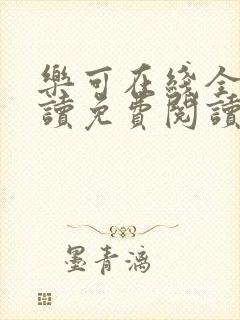 樂可在綫全
讀免費閱讀
墨青漓